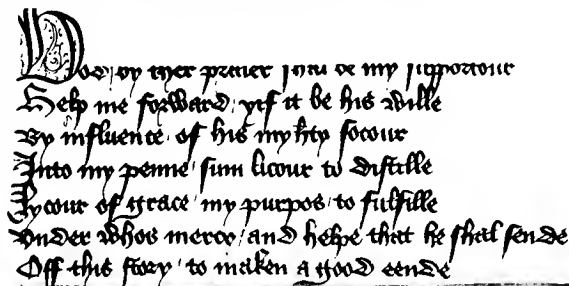 by ther preier Ihu be my supportour
Help me forward yif it be his wille
By influence of his myhty socour
Into my penne sum licour to distille
Lycour of grace my purpos to fulfille
Vnder whos mercy and helpe that he shal sende
Off this story to maken a good eende